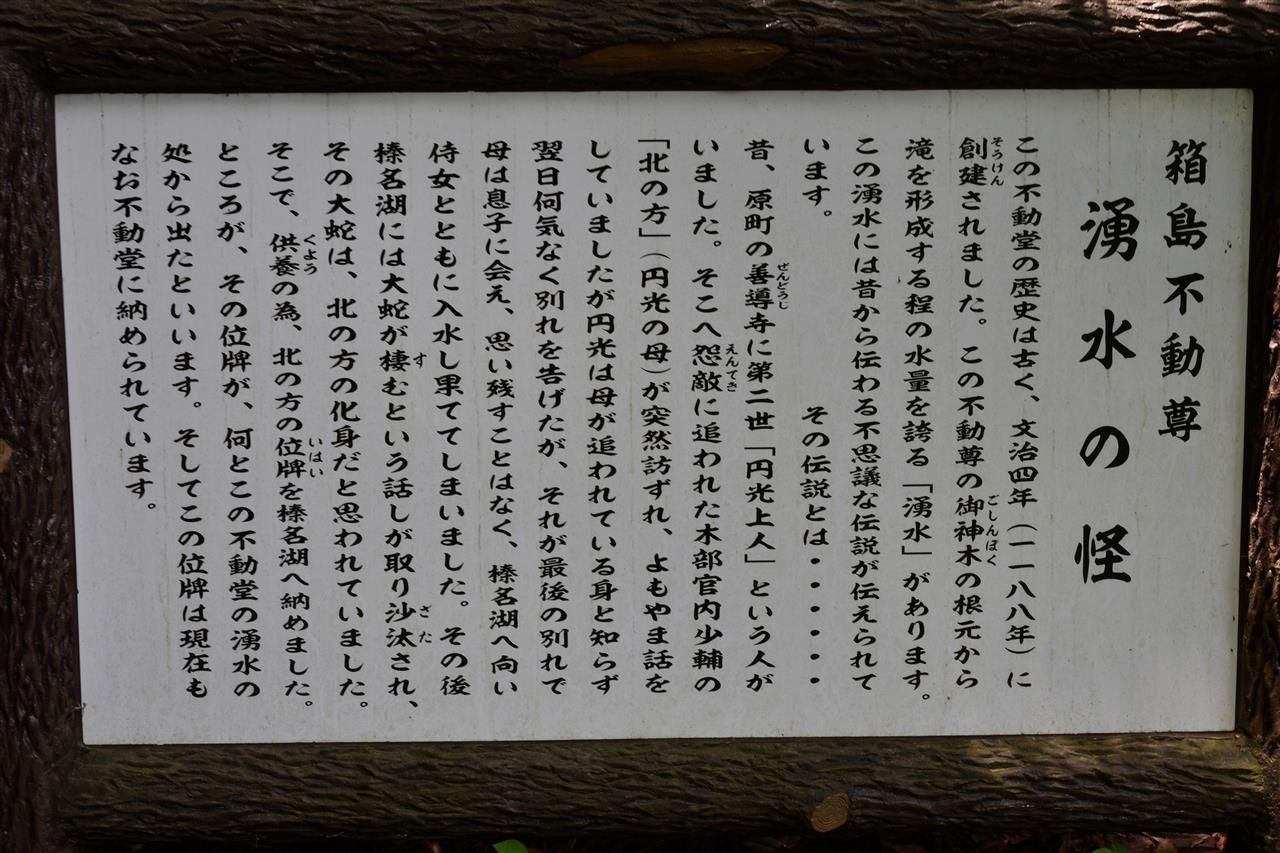 箱島不動尊
湧水の怪
この不動堂の歴史は古く、文治四年（一一八八年）に
創建されました。この不動尊の御神木の根元から
滝を形成する程の水量を誇る「湧水」があります。
この湧水には昔から伝わる不思議な伝説が伝えられて
います。　　　　　　その伝説とは・・・・・・
昔、原町の善導寺に第二世「円光上人」という人が
いました。そこへ怨敵に追われた木部官内少輔の
「北の方」（円光の母）が突然訪ずれ、よもやま話を
していましたが円光は母が追われている身と知らず
翌日何気なく別れを告げたが、それが最後の別れで
母は息子に会え、思い残すことはなく、榛名湖へ向い
侍女とともに入水し果ててしまいました。その後
榛名湖には大蛇が棲むという話しが取り沙汰され、
その大蛇は、北の方の化身だと思われていました。
そこで、供養の為、北の方の位牌を榛名湖へ納めました。
ところが、その位牌が、何とこの不動堂の湧水の
処から出たといいます。そしてこの位牌は現在も
なお不動堂に納められています。